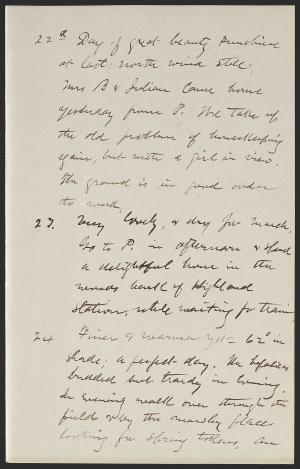 22d Day of great beauty, sunshine
at last. north wind still,
Mrs B & Julian came home
yesterday from P. We take up
the old problem of housekeeping
again, but with a girl in view.
The ground is in good order
to work.
23. Very lovely, & dry for March.
Go to P. in afternoon & spend
a delightful hour in the
woods back of Highland
Station, while waiting for train
24 Finer & warmer yet - 62° in
shade; a perfect day. The hepaticas
budded but tardy in coming.
In evening walk over through the
fields & by the marshy places
looking for spring tokens, an